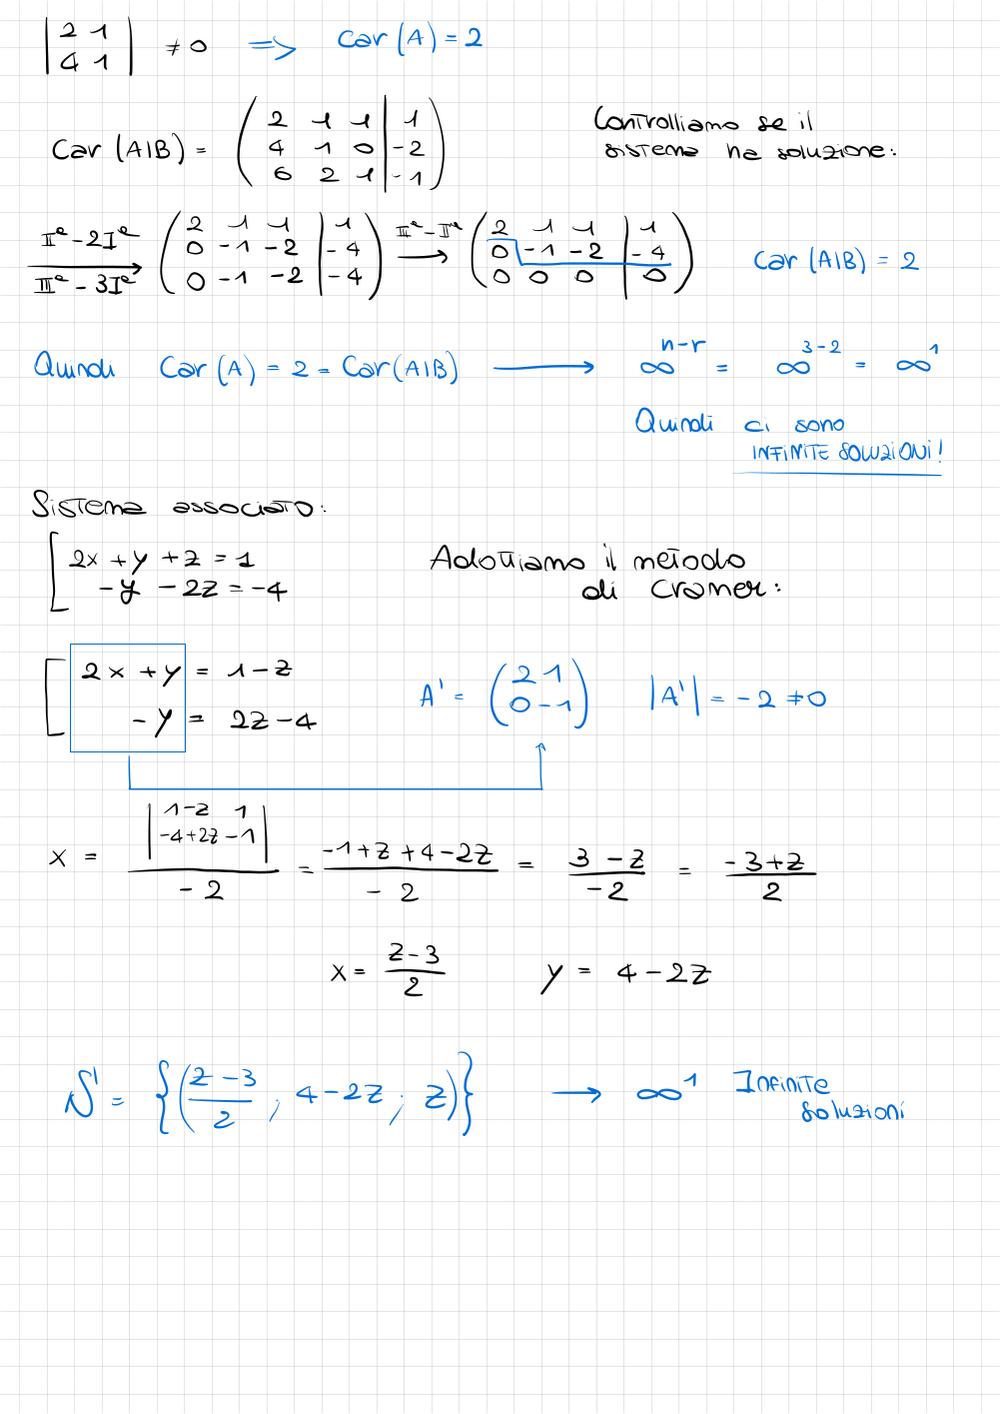 | 2 1 |
| 4 1 | ≠ 0 ⟹ Car (A) = 2
Car (A|B) = ( 2 1 1 | 1
4 1 0 | -2
6 2 1 | -1 )
Controlliamo se il
sistema ha soluzione:
IIª - 2Iª
IIIª - 3Iª
→ ( 2 1 1 | 1
0 -1 -2 | -4
0 -1 -2 | -4 )
IIIª - IIª
→ ( 2 1 1 | 1
0 -1 -2 | -4
0 0 0 | 0 )
Car (A|B) = 2
Quindi Car (A) = 2 = Car (A|B) ⟶ ∞^(n-r) = ∞^(3-2) = ∞^1
Quindi ci sono
INFINITE SOLUZIONI!
Sistema associato:
[ 2x + y + z = 1
- y - 2z = -4
Adottiamo il metodo
di Cramer:
[ 2x + y = 1 - z
- y = 2z - 4
A' = ( 2 1
0 -1 ) |A'| = -2 ≠ 0
x = | 1-z 1
-4+2z -1 | / -2 = -1+z+4-2z / -2 = 3-z / -2 = -3+z / 2
x = z-3 / 2 y = 4-2z
S = {( z-3 / 2 ; 4-2z ; z )} ⟶ ∞^1 Infinite
soluzioni